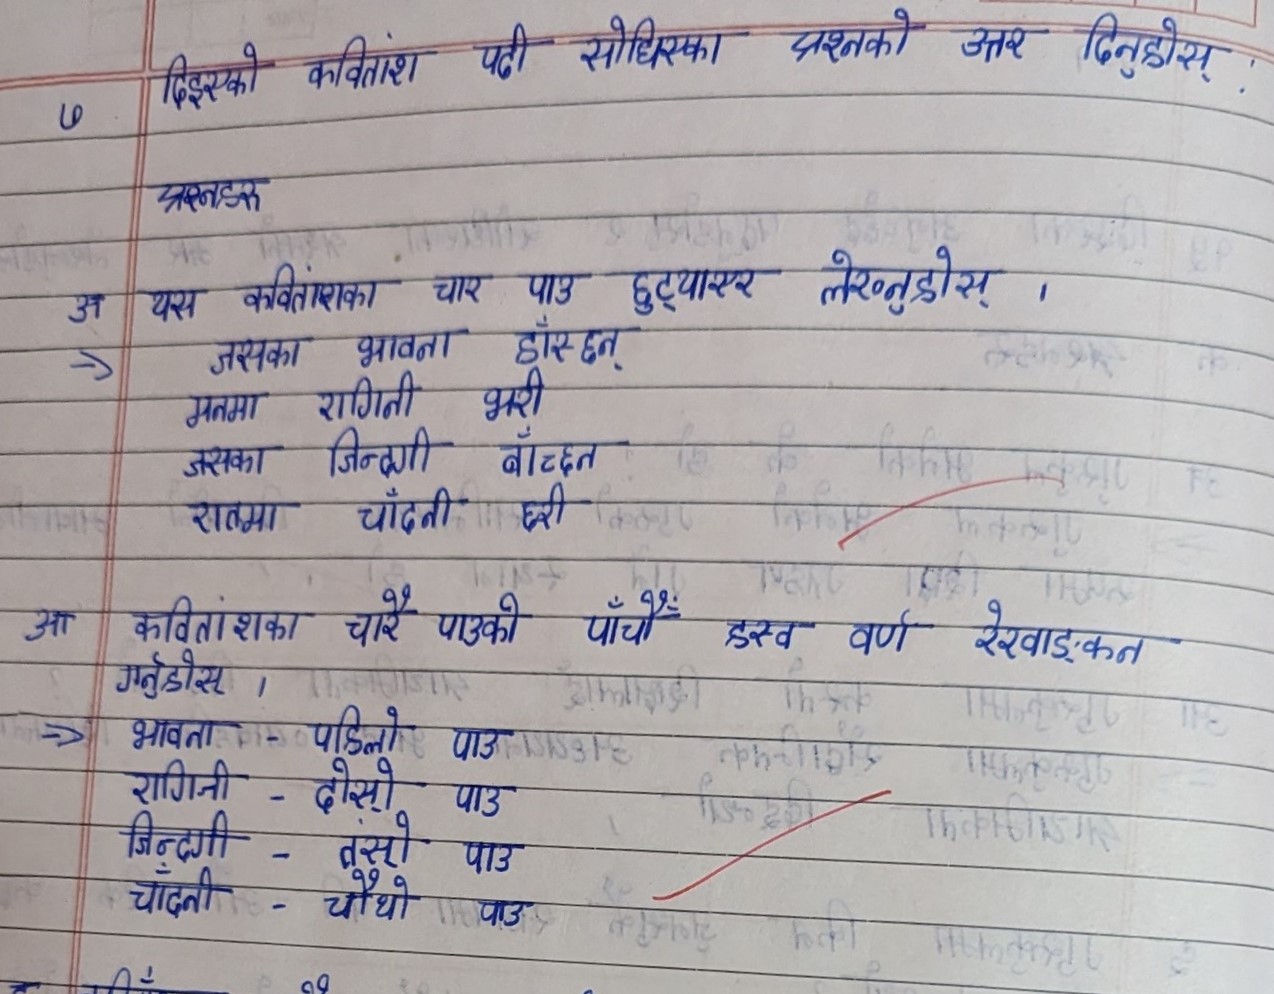 ७ दिइएको कवितांश पढी सोधिएका प्रश्नको उत्तर दिनुहोस् :
प्रश्नहरू
अ यस कवितांशका चार पाउ छुट्याएर लेख्नुहोस् ।
⇒ जसका भावना हाँस्छन्
मनमा रागिनी भरी
जसका जिन्दगी बाँच्छन
रातमा चाँदनी छरी
आ कवितांशका चारै पाउको पाँचौँ ह्रस्व वर्ण रेखाङ्कन
गर्नुहोस् ।
⇒ भावना - पहिलो पाउ
रागिनी - दोस्रो पाउ
जिन्दगी - तेस्रो पाउ
चाँदनी - चौथो पाउ